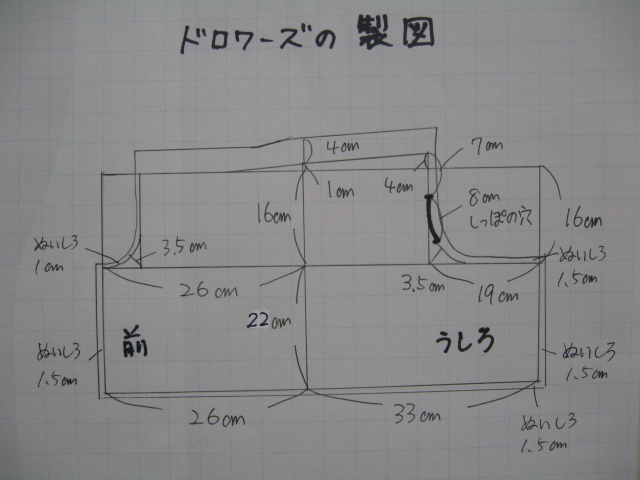 ドロワーズの製図
4cm
7cm
1cm
4cm
8cm
しっぽの穴
16cm
16cm
ぬいしろ
1cm
3.5cm
ぬいしろ
1.5cm
26cm
3.5cm
19cm
22cm
前
うしろ
ぬいしろ
1.5cm
ぬいしろ
1.5cm
26cm
33cm
ぬいしろ
1.5cm